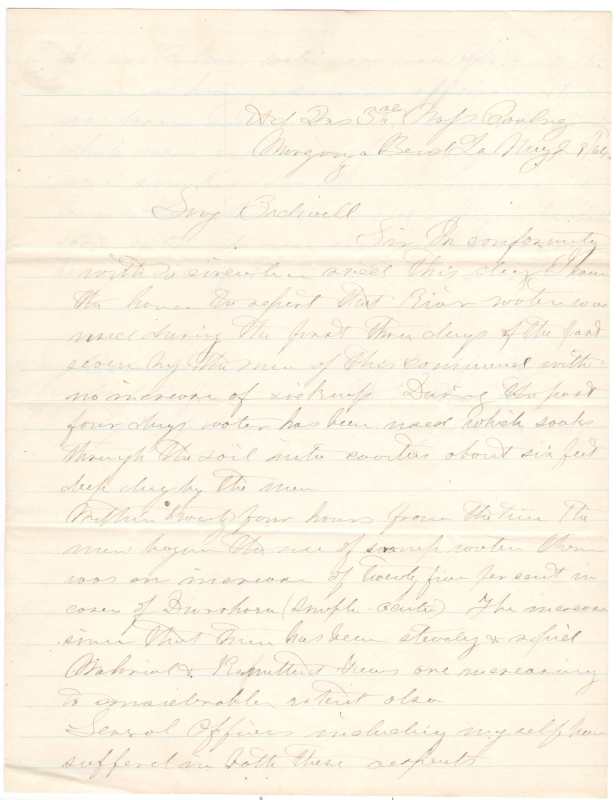 Hd Qrs 3rd Mass Cavalry
Morganza Bend La May
Surg Bidwell
Sir In conformity
with a circular recd this day I have
the honor to report that River water was
used during the first three days of the past
seven by the men of this command with
no increase of sickness. During the past
four days water has been used which soaks
through the soil into cavities about six feet
deep dug by the men
Within twenty four hours from the time the
men began the use of swamp water there
was an increase of twenty five per cent in
cases of Diarrhoea (simple acute) The increase
since that time has been steady & rapid
Malarial & Remittent fevers are increasing
to considerable extent also
Several Officers including myself have
suffered in both these respects